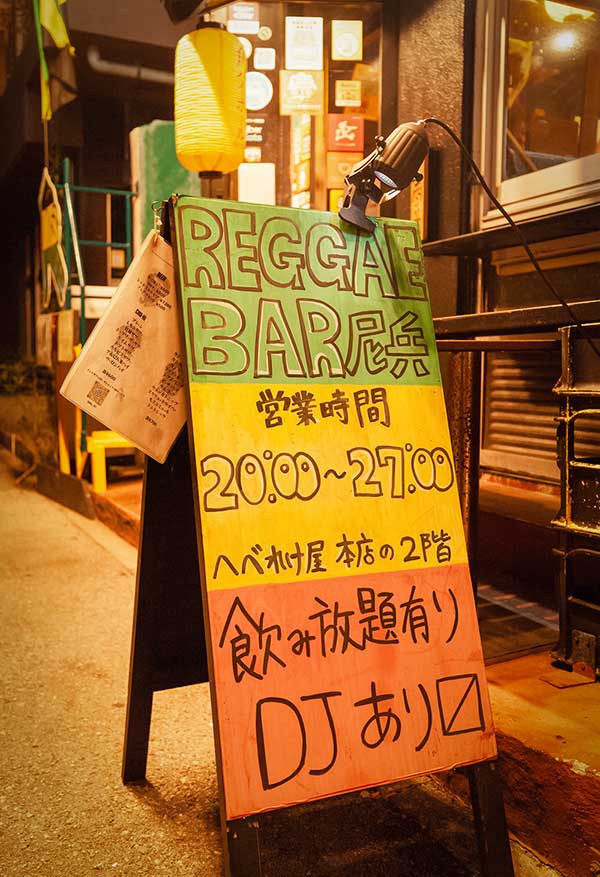 REGGAE
BAR尼兵
営業時間
20:00～27:00
へべれけ屋 本店の2階
飲み放題有り
DJあり〼